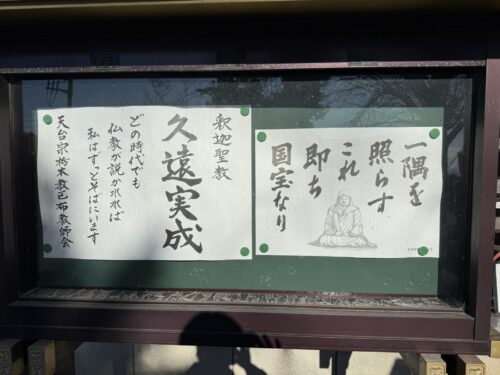 一隅を
照らす
これ
即ち
国宝なり
釈迦聖教
久遠実成
どの時代でも
仏教が説かれれば
私はずっとそばにいます
天台宗栃木教区布教師会